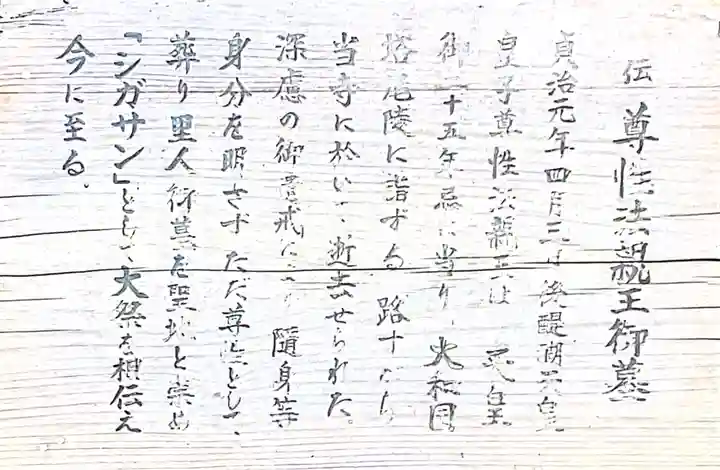 伝 尊性法親王御墓
貞治元年四月三日後醍醐天皇
皇子尊性法親王は 天皇
御二十五年忌に当り、大和国
塔尾陵に詣する 路すがら
当寺に於いて、逝去せられた。
深慮の御遺戒に 随身等
身分を明さず ただ尊生として、
葬り里人御墓を聖地と崇め
「シガサン」として大祭を相伝え
今に至る。